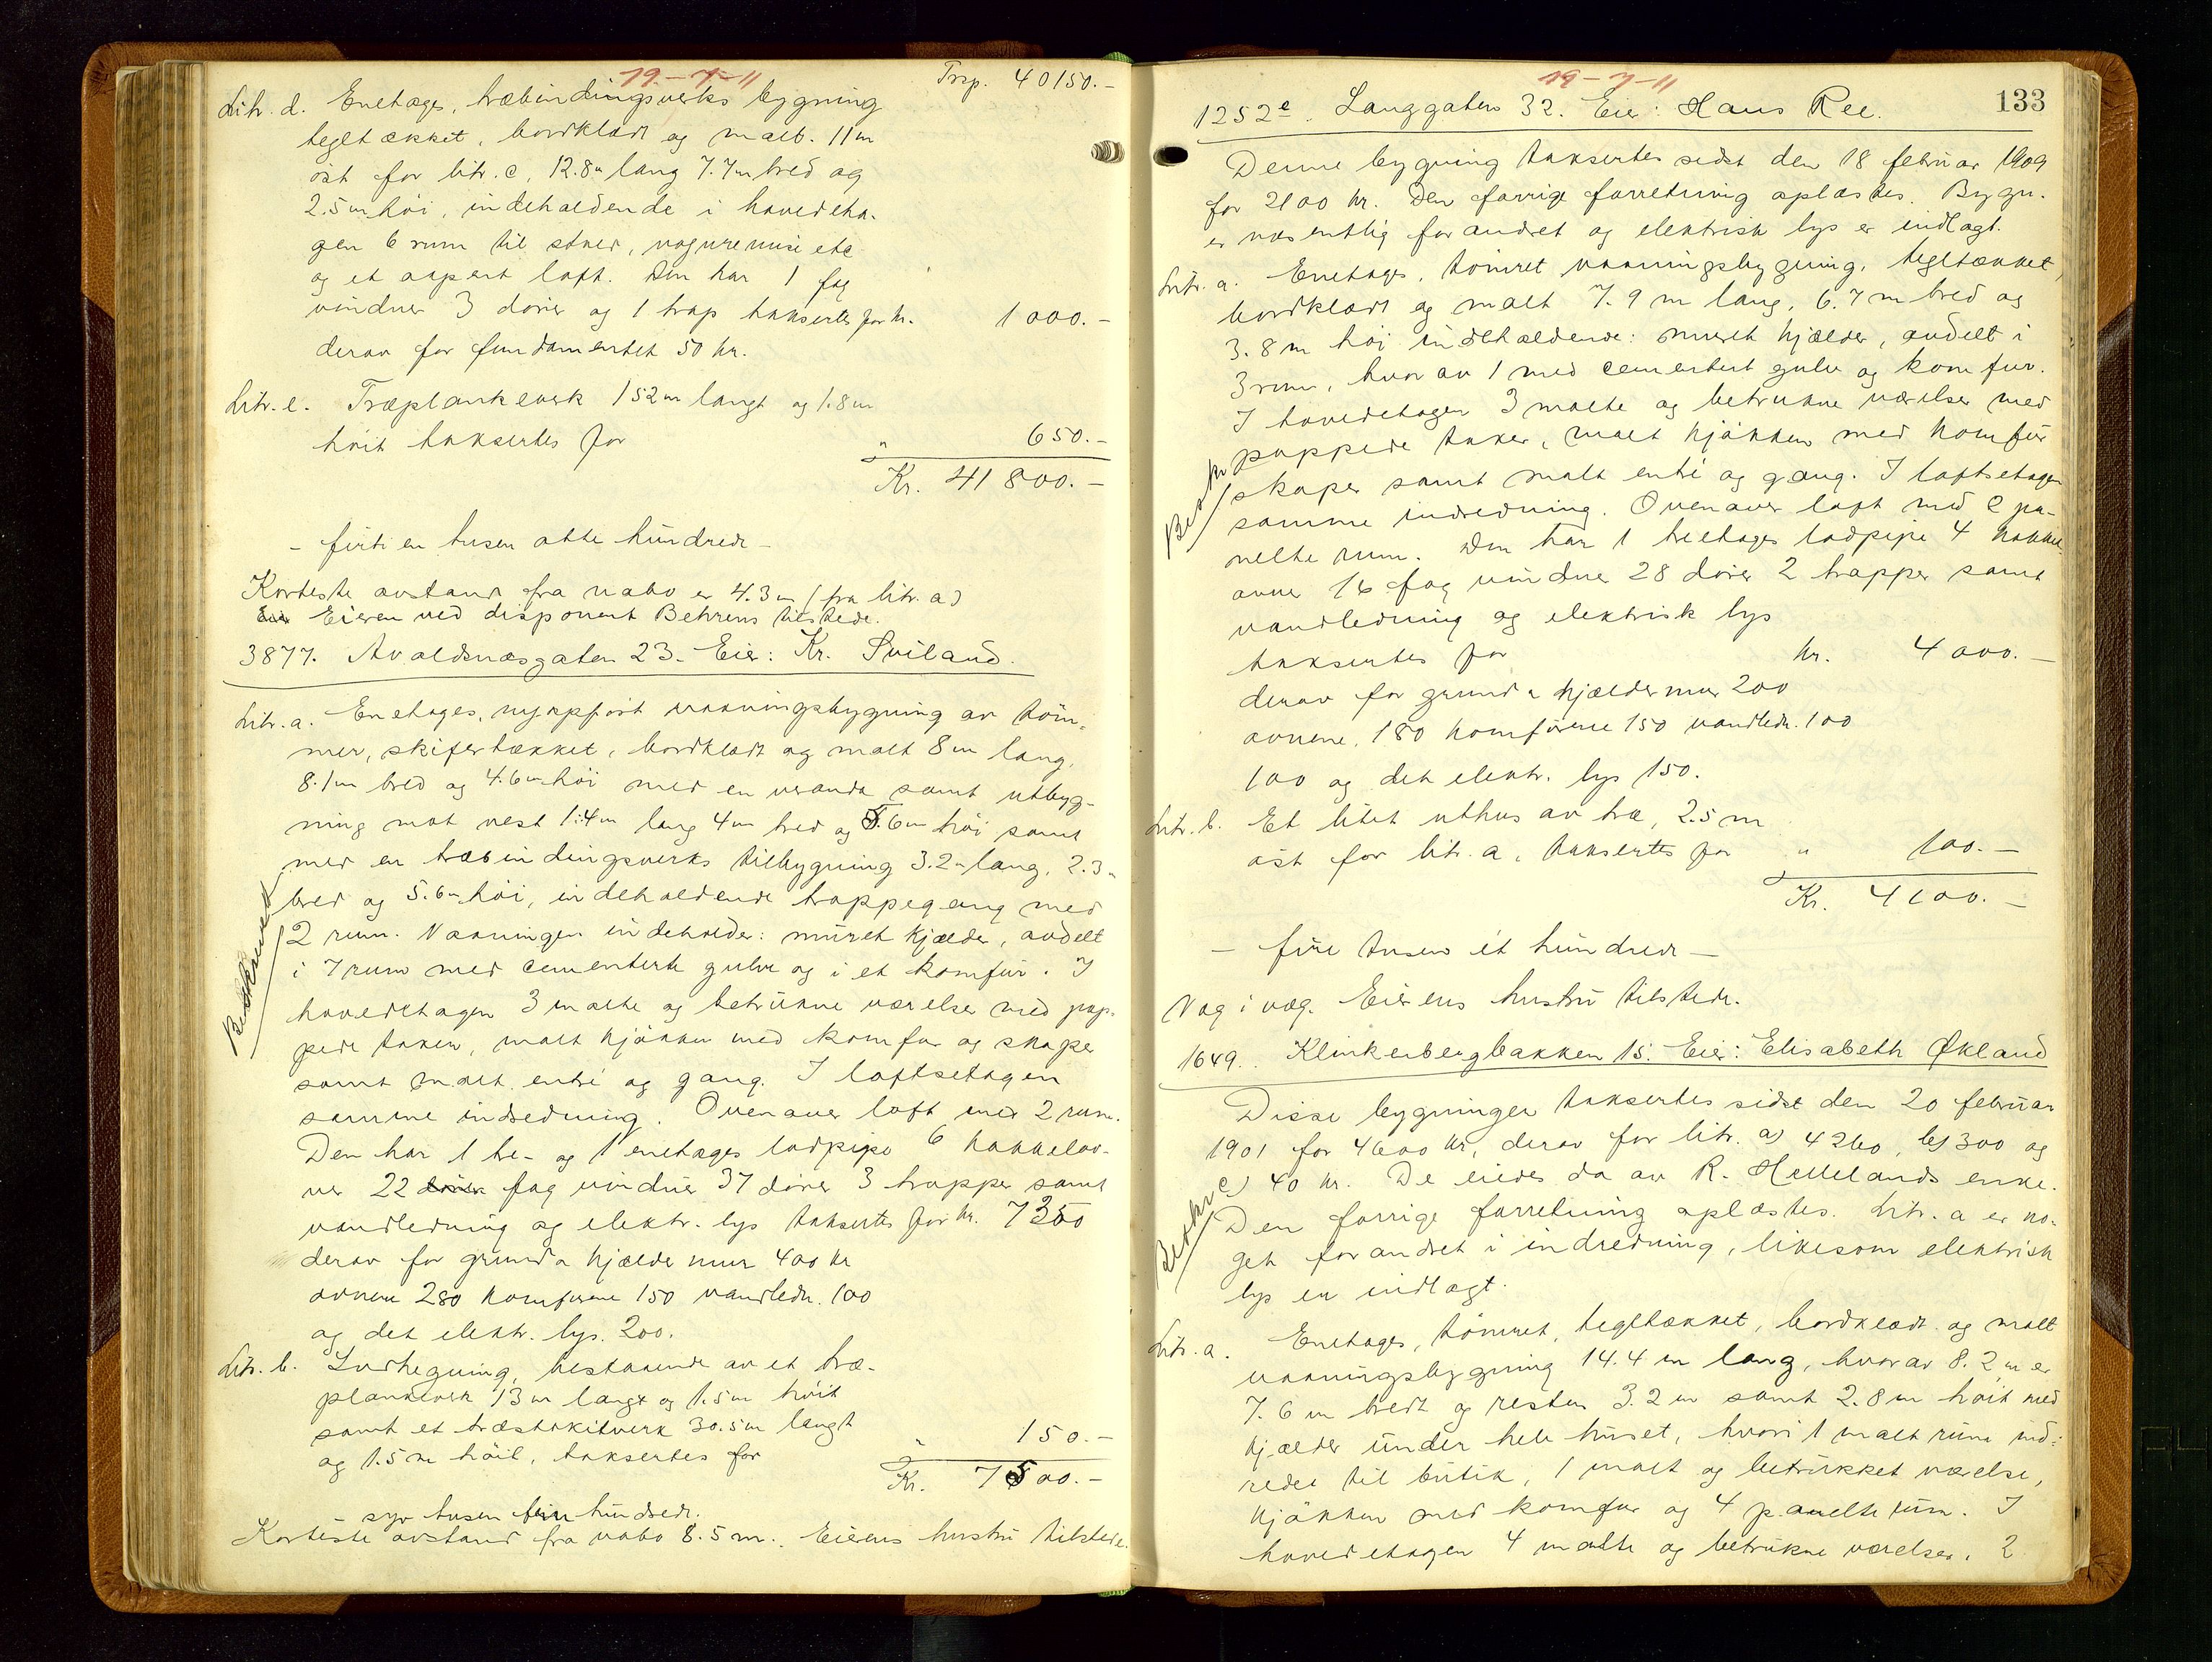 19-7-11
Trsp. 40150.-
Litr. d. Enetages, træbindingsverks bygning
tegltækket, bordklædt og malt. 11 m
øst for litr. c, 12.8 m lang 7.7 m bred og
2.5 m høi, indeholdende i hovedeta-
gen 6 rum til stald, vognremise etc
og et aapent loft. Den har 1 fag
vinduer 3 dører og 1 trap takseres for kr. 1000.-
derav for fundamentet 50 kr.
Litr. e. Træplankeverk 152 m langt og 1.8 m
høit takseres for " 650.-
Kr. 41800.-
- firti en tusen otte hundrede -
Korteste avstand fra nabo er 4.3 m (fra litr. a)
Eier Eieren ved disponent Behrens tilstede.
3877. Avaldsnæsgaten 23. Eier: Kr. Sviland.
Litr. a. Enetages, nyopført vaaningsbygning av tøm-
mer, skifertækket, bordklædt og malt 8 m lang,
8.1 m bred og 4.6 m høi med en veranda samt utbyg-
ning mot vest 1.4 m lang 4 m bred og 5.6 m høi samt
med en træbindingsverks tilbygning 3.2 m lang, 2.3 m
bred og 5.6 m høi, indeholdende trappegang med
2 rum. Vaaningen indeholder: muret kjælder, avdelt
i 7 rum med cementerte gulve og i et komfur. I
hovedetagen 3 malte og betrukne værelser med pap-
pede taker, malt kjøkken med komfur og skaper
samt malt entré og gang. I loftsetagen
samme indredning. Ovenover loft med 2 rum.
Den har 1 tre- og 1 enetages lodpipe 6 kakkelov-
ner 22 dører fag vinduer 37 dører 3 trapper samt
vandledning og elektr. lys takseres for kr. 7350
derav for grund & kjælder mur 400 kr
ovnene 280 komfurene 150 vandledn. 100
og det elektr. lys. 200.
Litr. b. Indhegning, bestaaende av et træ-
plankeverk 13 m langt og 1.5 m høit
samt et træstakitverk 30.5 m langt
og 1.5 m høit, takseres for " 150.-
Kr. 7500.-
- syv tusen fem hundrede.
Korteste avstand fra nabo 8.5 m. Eierens hustru tilstede.
19-7-11
133
1252e. Langgaten 32. Eier: Hans Ree.
Denne bygning taksertes sidst den 18 februar 1909
for 2100 kr. Den forrige forretning oplæstes. Bygn.
er væsentlig forandret og elektrisk lys er indlagt.
Litr. a. Enetages, tømret vaaningsbygning, tegltækket,
bordklædt og malt 7.9 m lang, 6.7 m bred og
3.8 m høi indeholdende: muret kjælder, avdelt i
3 rum, hvor av 1 med cementert gulv og komfur.
I hovedetagen 3 malte og betrukne værelser med
pappede taker, malt kjøkken med komfur
skaper samt malt entré og gang. I loftsetagen
samme indredning. Ovenover loft med 2 pa-
nelte rum. Den har 1 treetages lodpipe 4 kakkel-
ovne 16 fag vinduer 28 dører 2 trapper samt
vandledning og elektrisk lys
takseres for kr. 4000.-
derav for grund & kjælder mur 200
ovnene, 180 komfurene 150 vandledn. 100
100 og det elektr. lys 150.
Litr. b. Et litet uthus av træ, 2.5 m
øst for litr. a, takseres for " 100.-
Kr. 4100.-
- fire tusen ét hundrede -
Væg i væg. Eierens hustru tilstede.
1649. Klinkenbergbakken 15. Eier: Elisabeth Økland
Disse bygninger taksertes sidst den 20 februar
1901 for 4600 kr, derav for litr. a) 4260, b) 300 og
c) 40 kr. De eiedes da av R. Hellelands enke.
Den forrige forretning oplæstes. Litr. a er no-
get forandret i indredning, likesom elektrisk
lys er indlagt.
Litr. a. Enetages, tømret, tegltækket, bordklædt og malt
vaaningsbygning 14.4 m lang, hvorav 8.2 m er
7.6 m bredt og resten 3.2 m samt 2.8 m høit med
kjælder under hele huset, hvori 1 malt rum ind-
redet til butik, 1 malt og betrukket værelse,
kjøkken med komfur og 4 panelte rum. I
hovedetagen 4 malte og betrukne værelser, 2